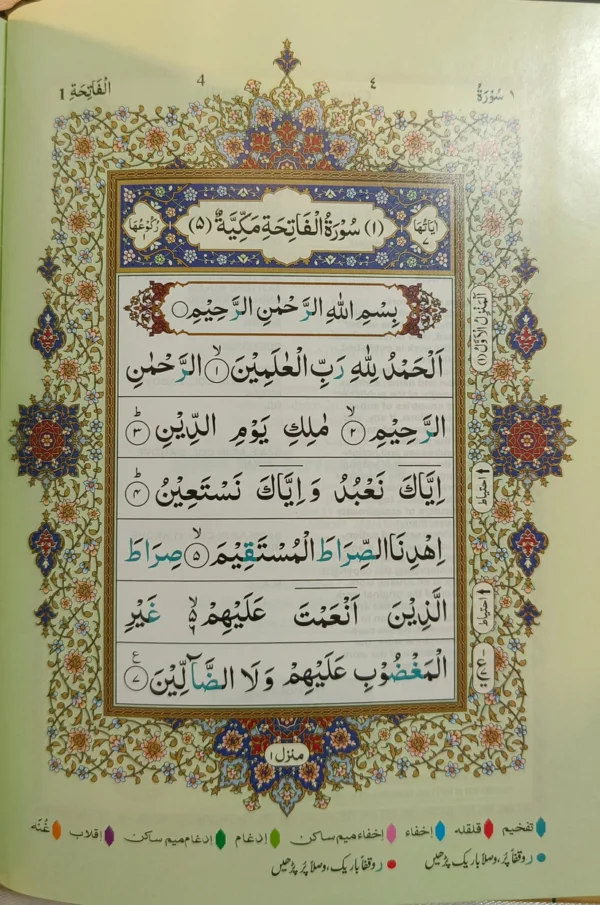 ١ سُوْرَةُ ٤ 4 اَلْفَاتِحَةِ 1
اٰيَاتُهَا ٧ (١) سُوْرَةُ الْفَاتِحَةِ مَكِّيَّةٌ (٥) رُكُوْعُهَا ١
بِسْمِ اللّٰهِ الرَّحْمٰنِ الرَّحِيْمِ
اَلْحَمْدُ لِلّٰهِ رَبِّ الْعٰلَمِيْنَ ۙ﴿١﴾ الرَّحْمٰنِ
الرَّحِيْمِ ۙ﴿٢﴾ مٰلِكِ يَوْمِ الدِّيْنِ ؕ﴿٣﴾
اِيَّاكَ نَعْبُدُ وَاِيَّاكَ نَسْتَعِيْنُ ؕ﴿٤﴾
اِهْدِنَا الصِّرَاطَ الْمُسْتَقِيْمَ ۙ﴿٥﴾ صِرَاطَ
الَّذِيْنَ اَنْعَمْتَ عَلَيْهِمْ ۙ٦ غَيْرِ
الْمَغْضُوْبِ عَلَيْهِمْ وَلَا الضَّآلِّيْنَ ﴿٧﴾ ع
اَلْمَنْزِلُ الْاَوَّلُ (١)
احتیاط
احتیاط
منزل ١
تفخیم قلقله إخفاء إخفاء میم ساکن إدغام إدغام میم ساکن إقلاب غُنّه
ر وقفاً پُر، وصلاً باریک پڑھیں
ر وقفاً باریک، وصلاً پُر پڑھیں